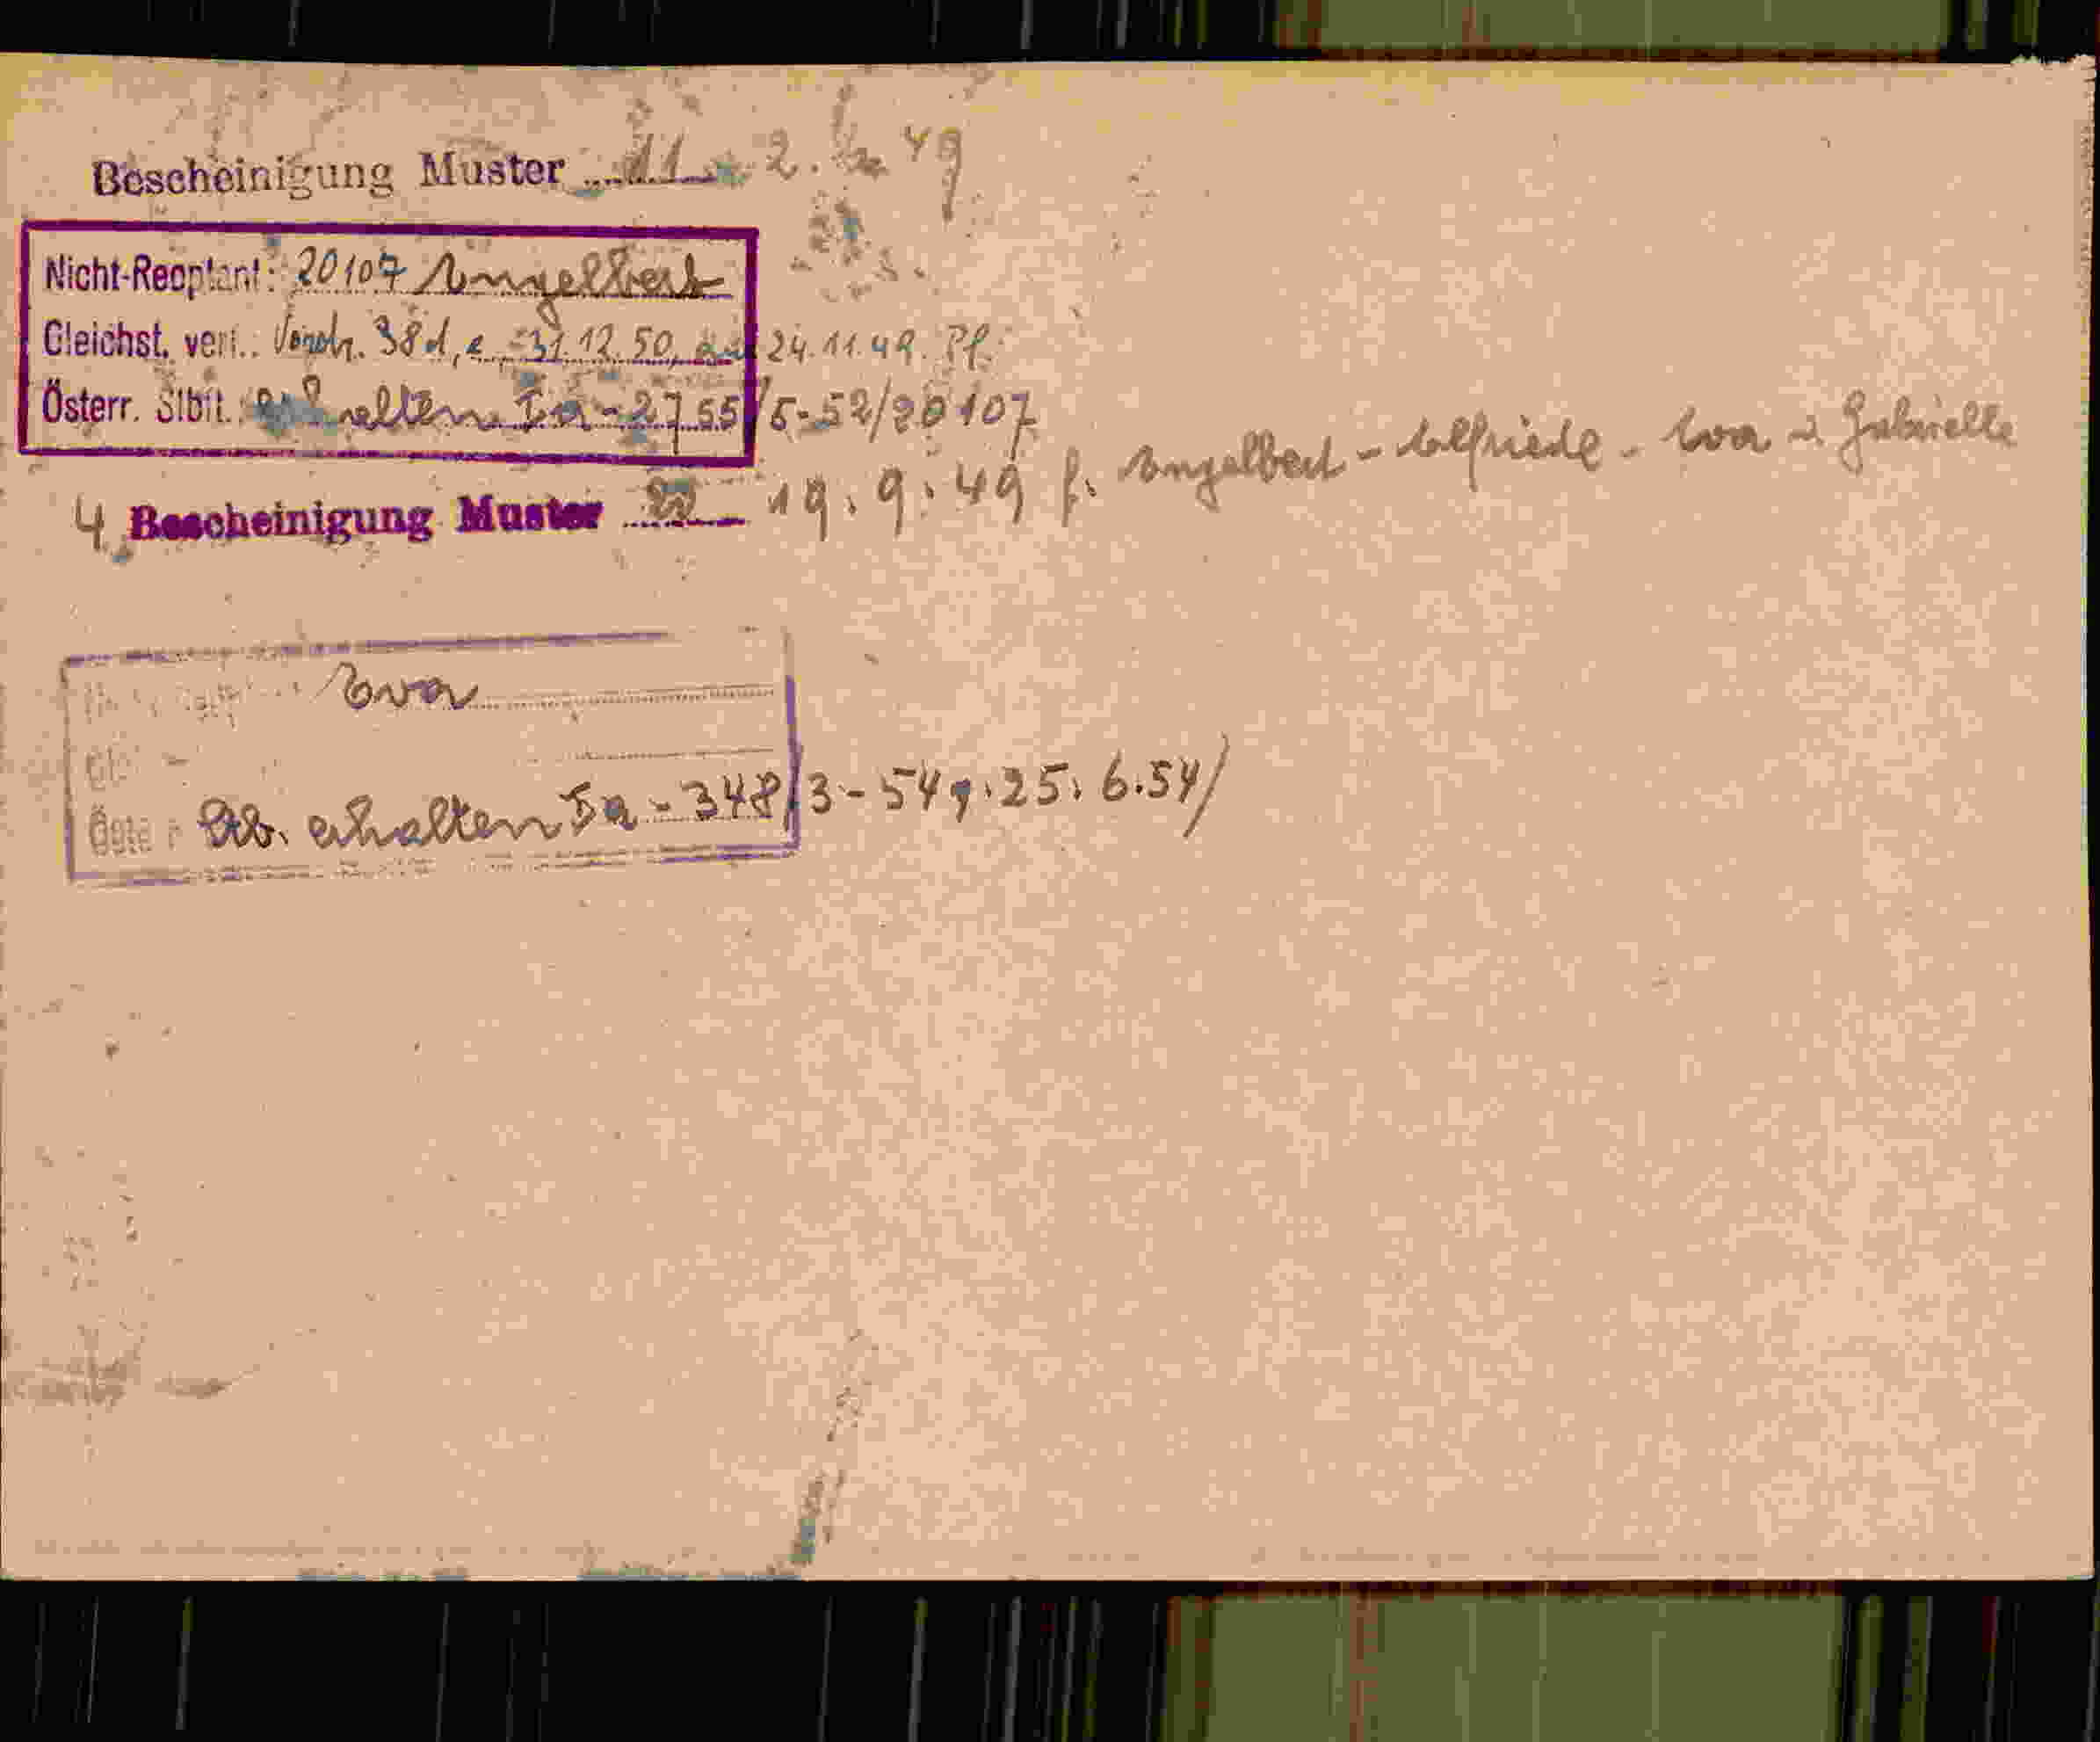 Bescheinigung Muster 11 2. 49
Nicht-Reoptant: 20107 Engelbert
Gleichst. verl.: 38 d, e 31.12.50, 24.11.49. Pf.
Österr. Stbft.: erhalten Ia - 2755/5-52/20107
4 Bescheinigung Muster 19. 9. 49 f. Engelbert - Elfriede - Eva Gabrielle
Eva
erhalten Ia - 348/3-54 25. 6. 54/